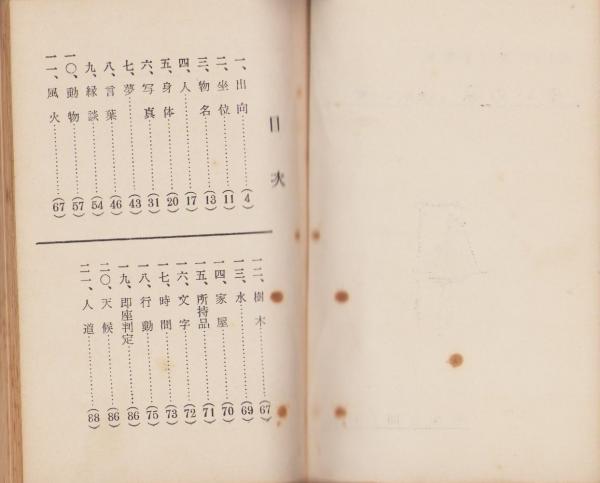 目次
一、出向……………(4)
二、坐位……………(11)
三、物名……………(13)
四、人……………(17)
五、身体……………(20)
六、写真……………(31)
七、夢……………(43)
八、言葉……………(46)
九、縁談……………(54)
一〇、動物……………(57)
一一、風火……………(67)
一二、樹木……………(67)
一三、水……………(69)
一四、家屋……………(70)
一五、所持品……………(71)
一六、文字……………(72)
一七、時間……………(73)
一八、行動……………(75)
一九、即座判定……………(86)
二〇、天候……………(86)
二一、人道……………(88)